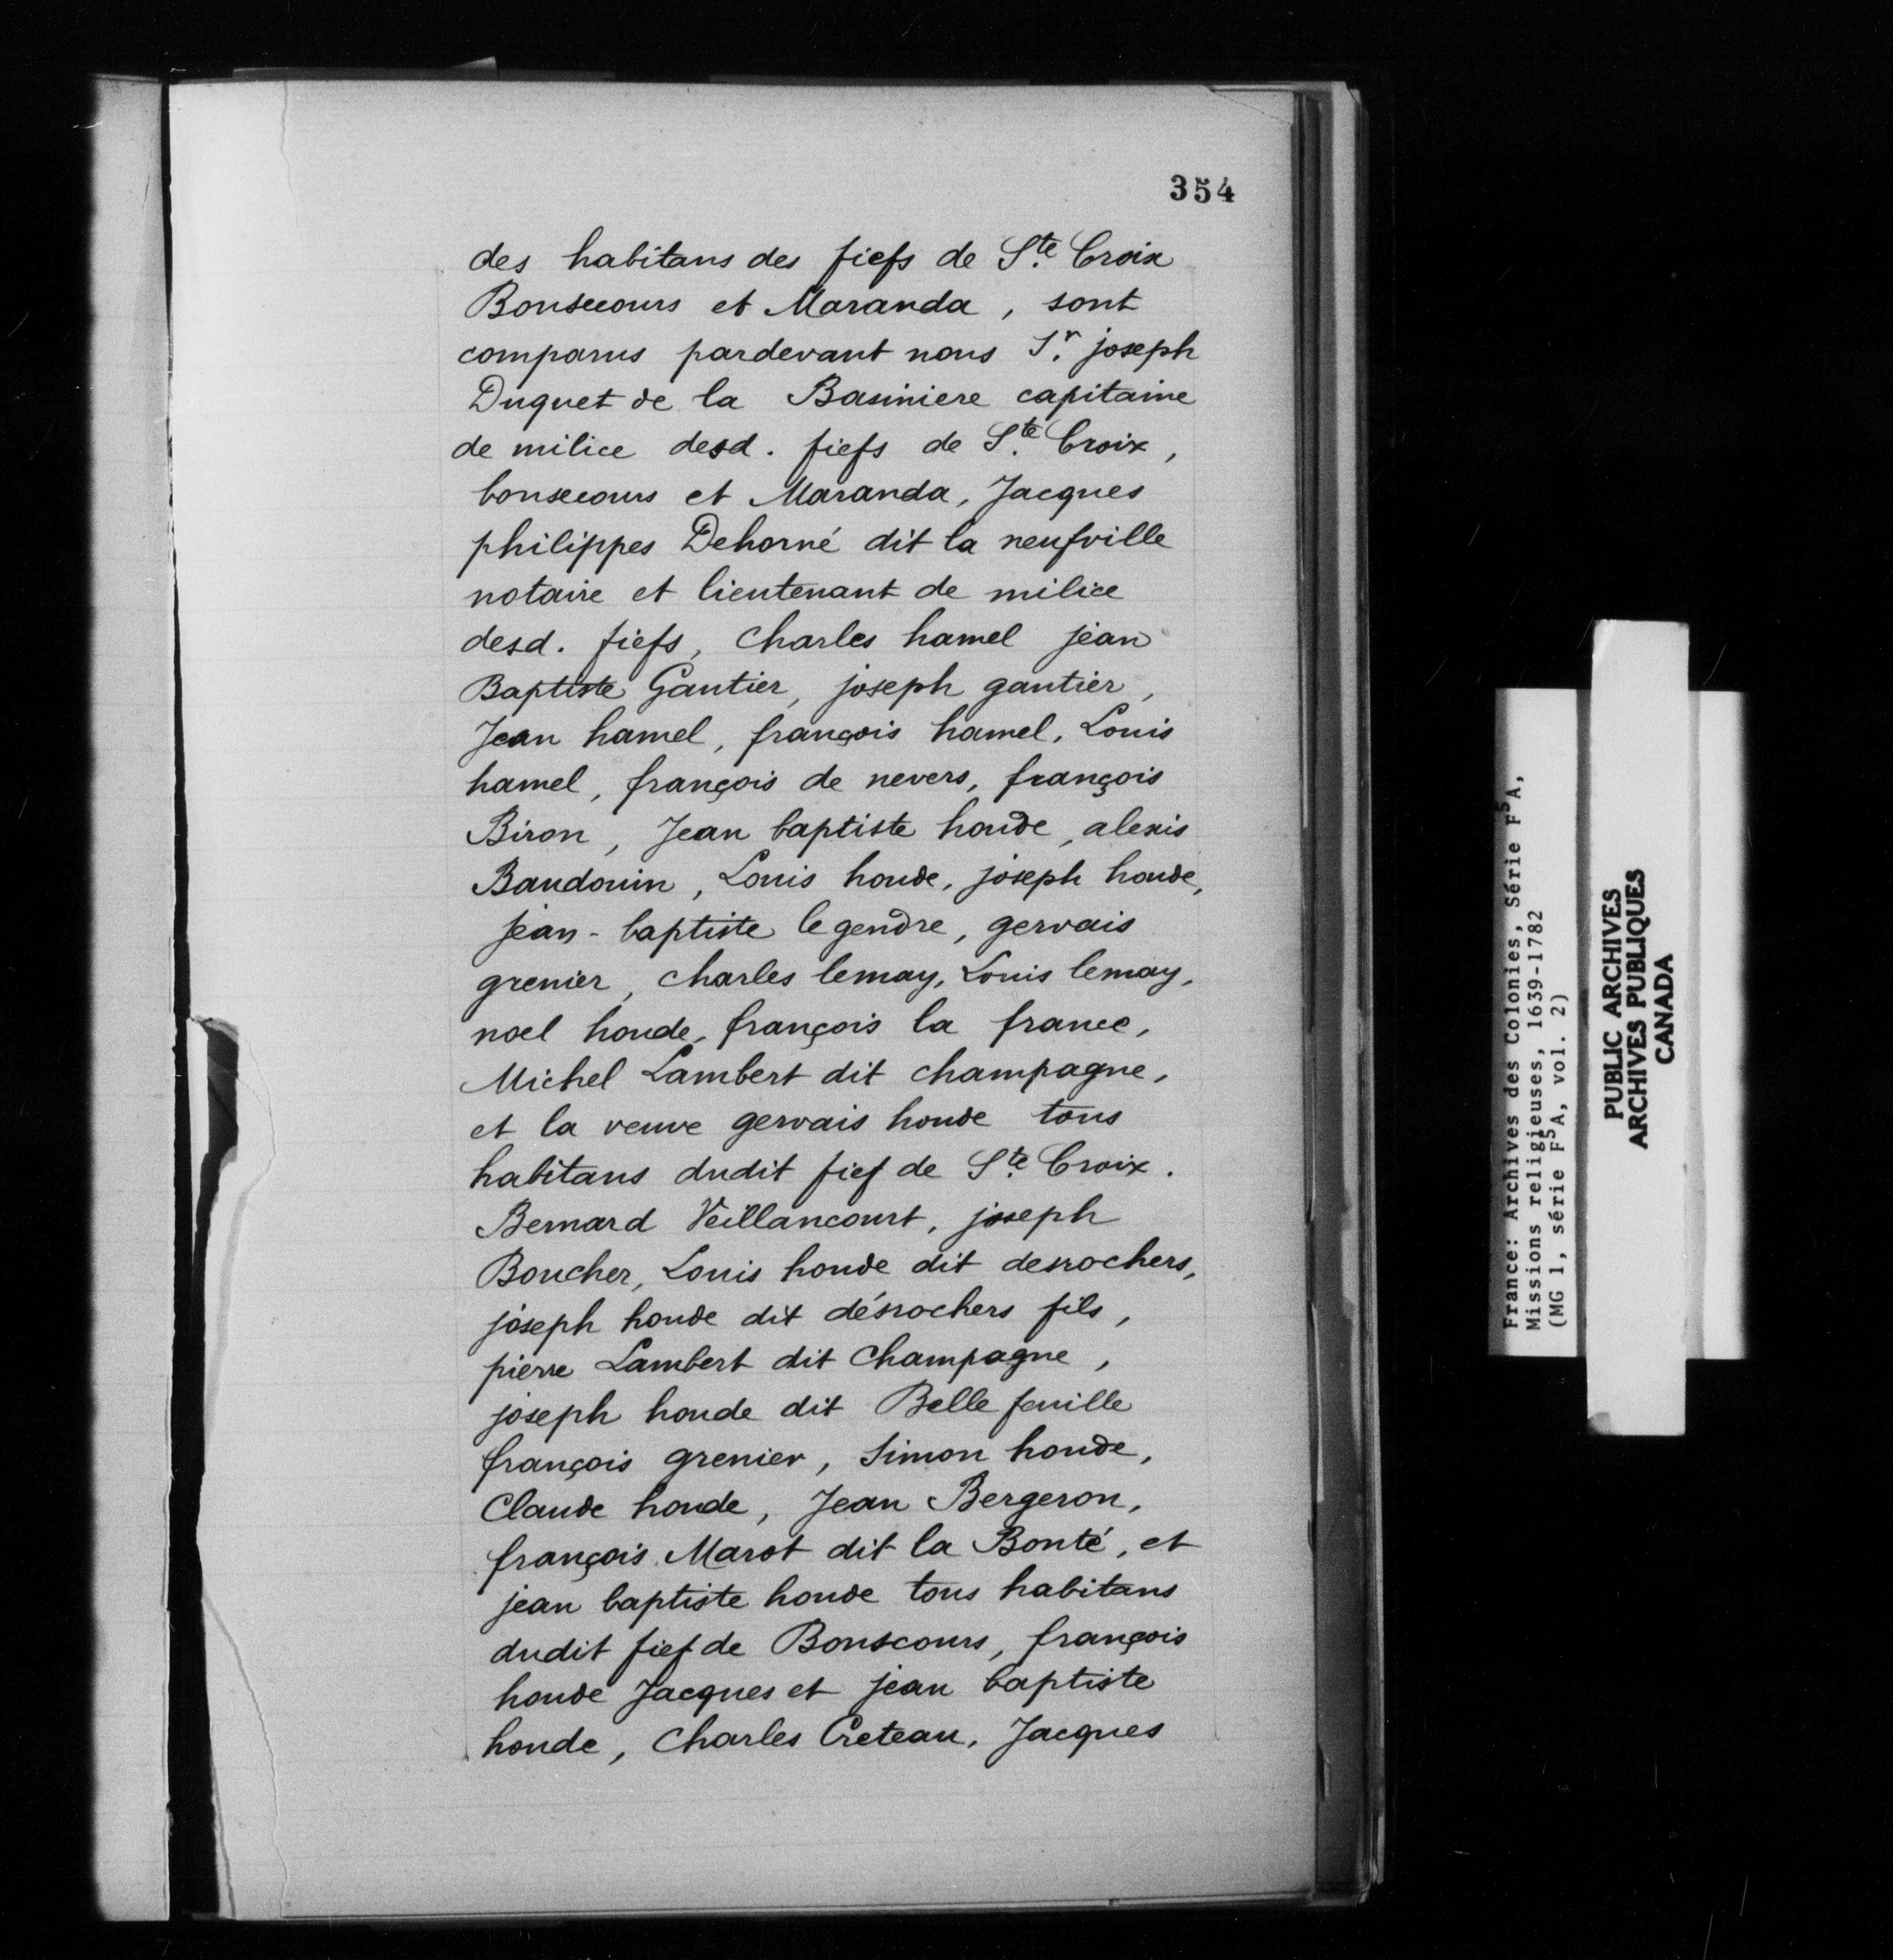 354
des habitans des fiefs de Ste. Croix
Bonsecours et Maranda, sont
comparus pardevant nous Sr. joseph
Duquet de la Basiniere capitaine
de milice desd. fiefs de Ste. Croix,
bonsecours et Maranda, Jacques
philippes Dehorné dit la neufville
notaire et lieutenant de milice
desd. fiefs, Charles hamel jean
Baptiste Gautier, joseph gautier,
Jean hamel, françois hamel, Louis
hamel, françois de nevers, françois
Biron, Jean baptiste houde, alexis
Baudouin, Louis houde, joseph houde,
jean-baptiste legendre, gervais
grenier, Charles lemay, Louis lemay,
noel houde, françois la france,
Michel Lambert dit champagne,
et la veuve gervais houde tous
habitans dudit fief de Ste. Croix.
Bernard Veillancourt, joseph
Boucher, Louis houde dit desrochers,
joseph houde dit désrochers fils,
pierre Lambert dit Champagne,
joseph houde dit Belle feuille
françois grenier, Simon houde,
Claude houde, Jean Bergeron,
françois Marot dit la Bonté, et
jean baptiste houde tous habitans
dudit fief de Bonscours, françois
houde Jacques et jean baptiste
houde, Charles Creteau, Jacques
France: Archives des Colonies, Série F5A,
Missions religieuses, 1639-1782
(MG 1, série F5A, vol. 2)
PUBLIC ARCHIVES
ARCHIVES PUBLIQUES
CANADA